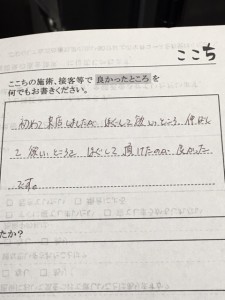 ここち
ここちの施術、接客等で良かったところを
何でもお書きください。
初めて来店しましたが、ほぐして欲しいところ、
て欲しいところを ほぐして頂けたのが 良かった
です。
たか？